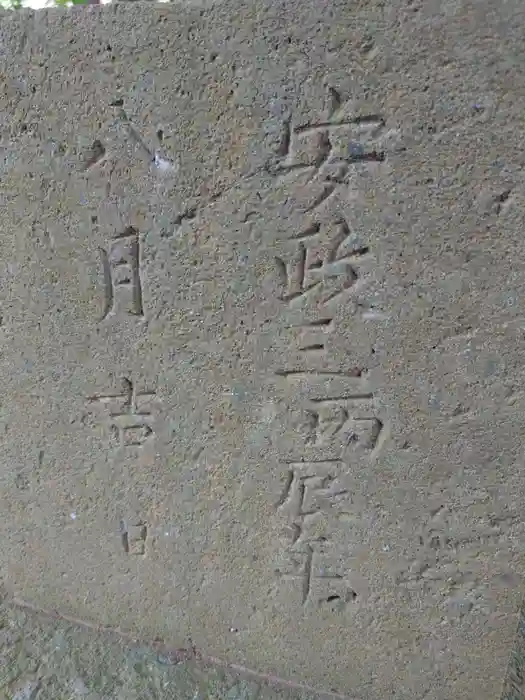 安政三丙辰年
八月吉日